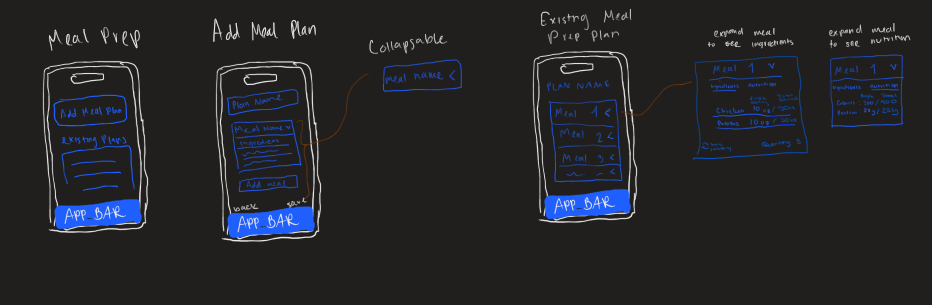 Meal Prep
Add Meal Plan
existing Plans
APP_BAR
Add Meal Plan
Plan Name
Meal Name v
Ingredients
Add meal
back
save
APP_BAR
Collapsable
meal name <
Existing Meal
Prep Plan
PLAN NAME
Meal 1 <
Meal 2 <
Meal 3 <
APP_BAR
expand meal
to see ingredients
Meal 1 v
Ingredients nutrition
Chicken
Potatoes
Quantity
expand meal
to see nutrition
Meal 1 v
Ingredients nutrition
Protein